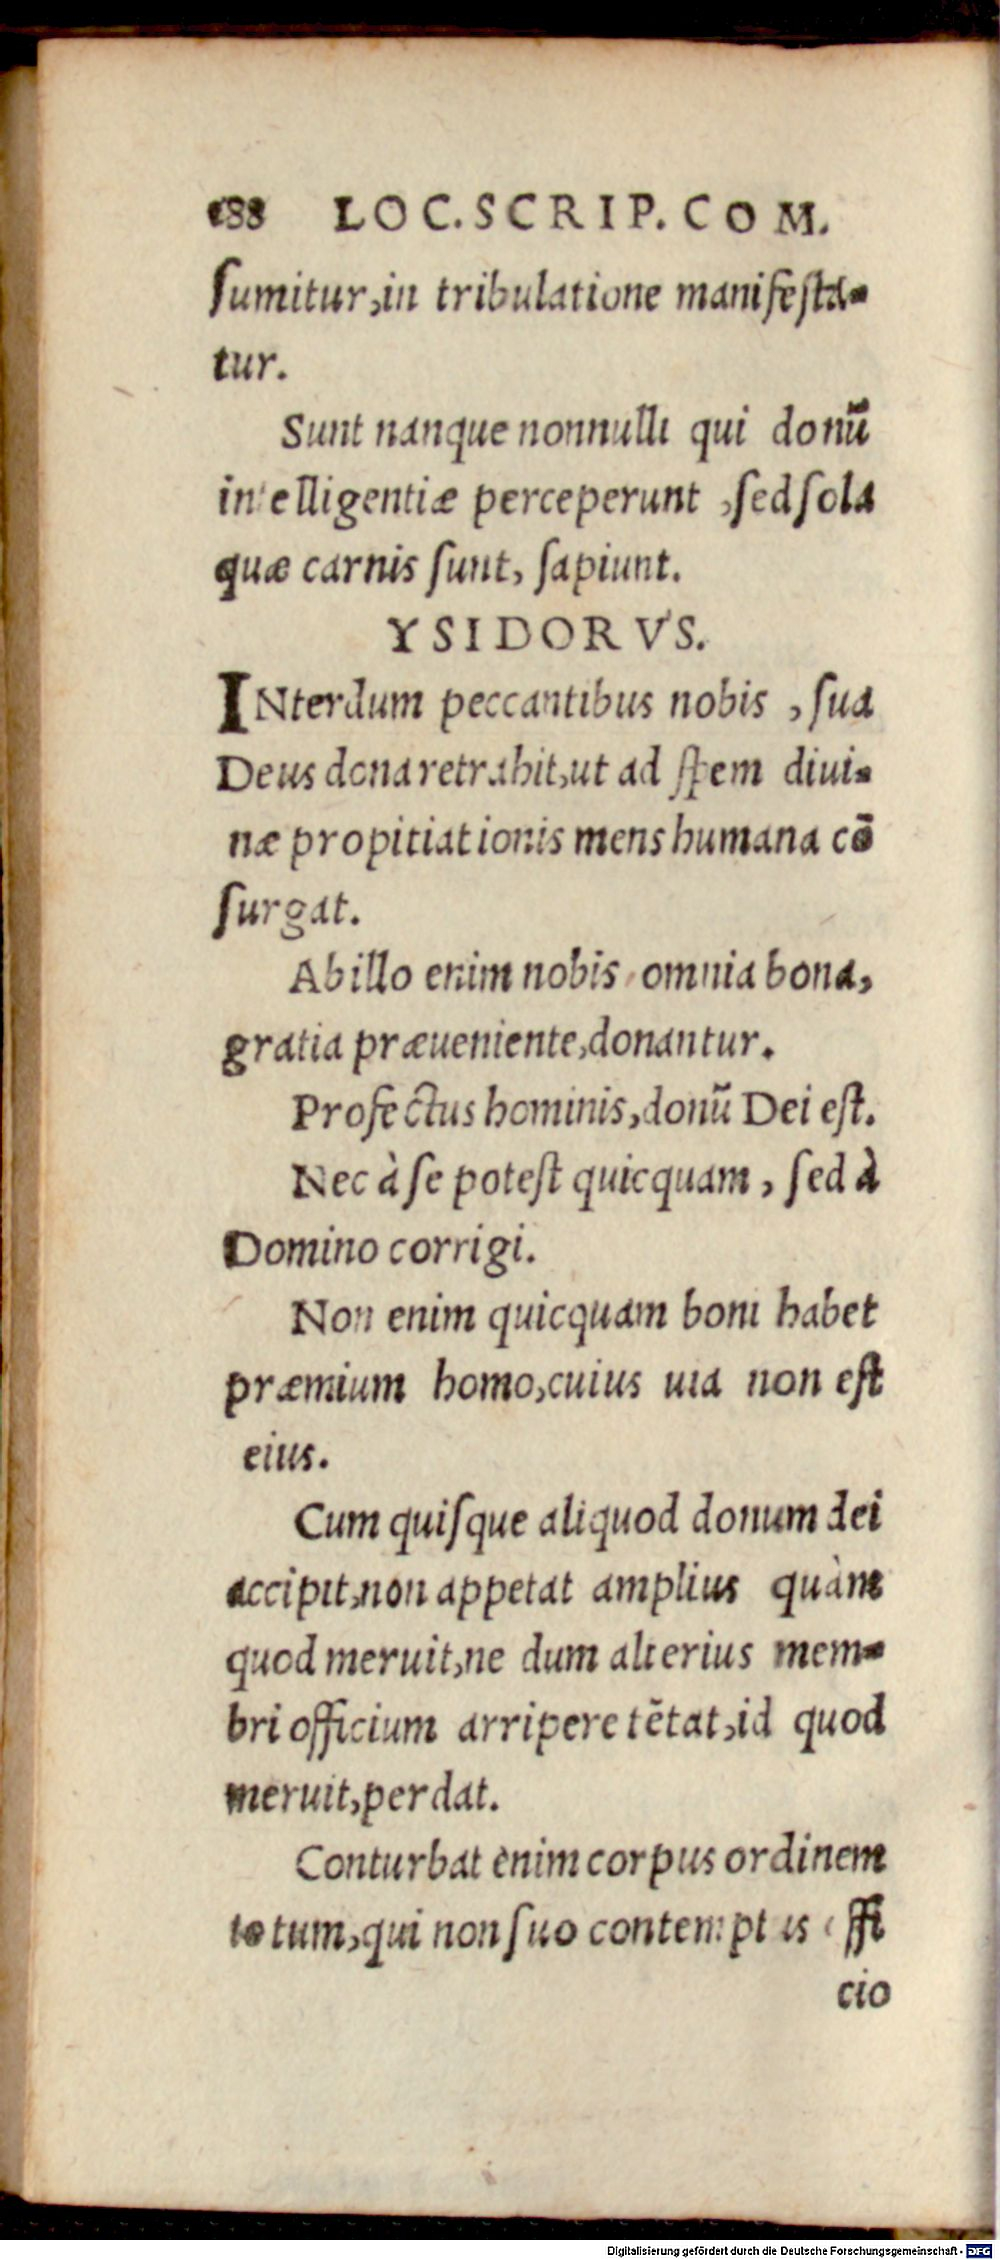 188 LOC. SCRIP. COM.
ſumitur, in tribulatione manifeſta-
tur.
Sunt nanque nonnulli qui donū
intelligentiæ perceperunt, ſed ſola
quæ carnis ſunt, ſapiunt.
YSIDORVS.
INterdum peccantibus nobis, ſua
Deus dona retrahit, ut ad ſpem diui-
næ propitiationis mens humana cō
ſurgat.
Ab illo enim nobis omnia bona,
gratia præueniente, donantur.
Profectus hominis, donū Dei eſt.
Nec à ſe poteſt quicquam, ſed à
Domino corrigi.
Non enim quicquam boni habet
præmium homo, cuius uia non eſt
eius.
Cum quiſque aliquod donum dei
accipit, non appetat amplius quàm
quod meruit, ne dum alterius mem-
bri officium arripere tētat, id quod
meruit, perdat.
Conturbat enim corpus ordinem
totum, qui non ſuo contemptus offi
cio
Digitalisierung gefördert durch die Deutsche Forschungsgemeinschaft - DFG